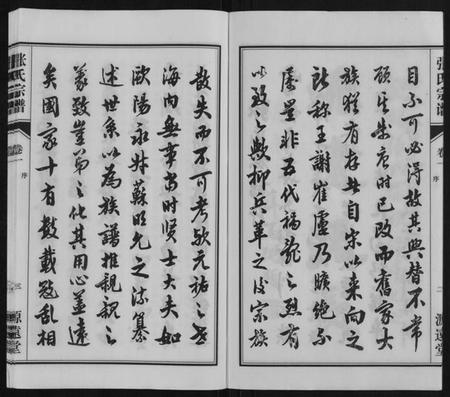 張氏宗譜
卷一
序
二
源遠堂
目不可必得故其興替不常
顧其崇唐時已改而舊家大
族猶有存者自宋以来向之
所稱王謝崔盧乃曠絶不
屢見非五代禍亂之烈有
以致之歟抑兵革之後宗族
散失而不可考歟元祐之世
海内無事當時賢士大夫如
歐陽永叔蘇明允之流纂
述世系以為族譜推親親之
義致豈弟之化其用心益遠
矣國家十有數載寇亂相
張氏宗譜
卷一
序
三
源遠堂